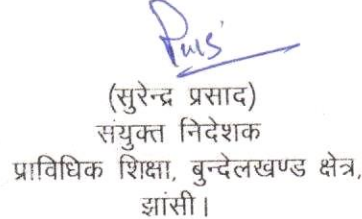 (सुरेन्द्र प्रसाद)
संयुक्त निदेशक
प्राविधिक शिक्षा, बुन्देलखण्ड क्षेत्र,
झांसी।